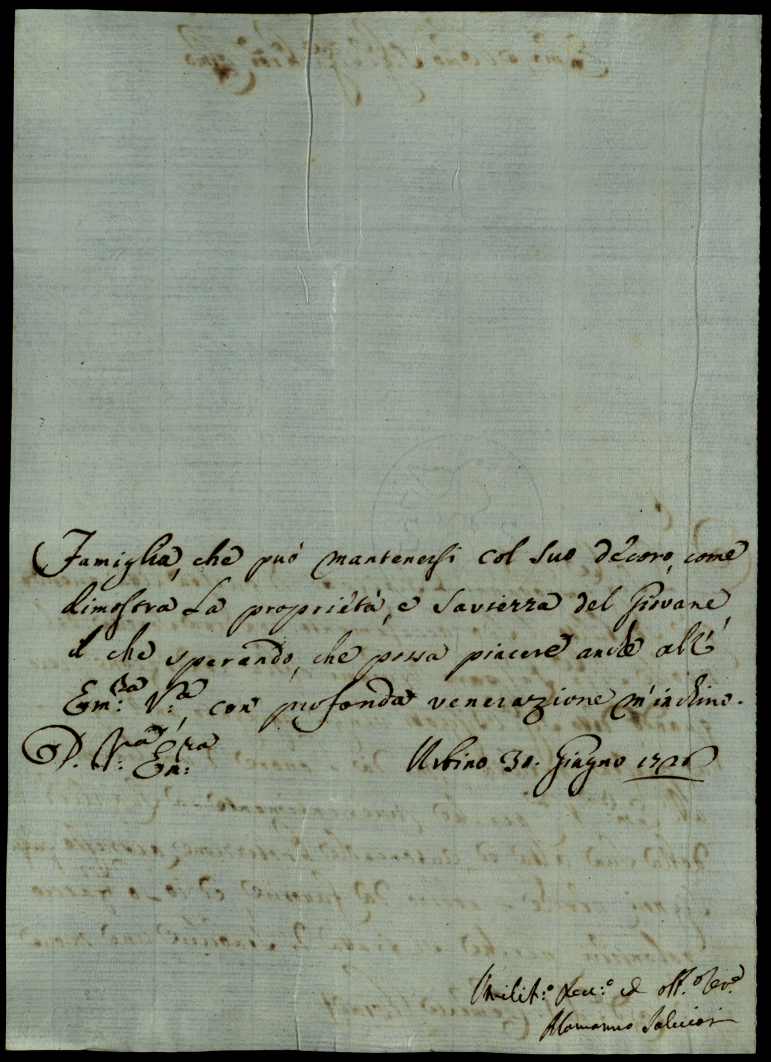 Famiglia, che può mantenersi col suo decoro, come
dimostra la proprietà, e saviezza del Giovane,
il che sperando, che possa piacere anche all'
Em:za V:ra con profonda venerazione m'inchino.
D. V:ra Em:za
Urbino 30. Giugno 1726
Umilit:o et obb:o Ser:e
Alamanno Salviati